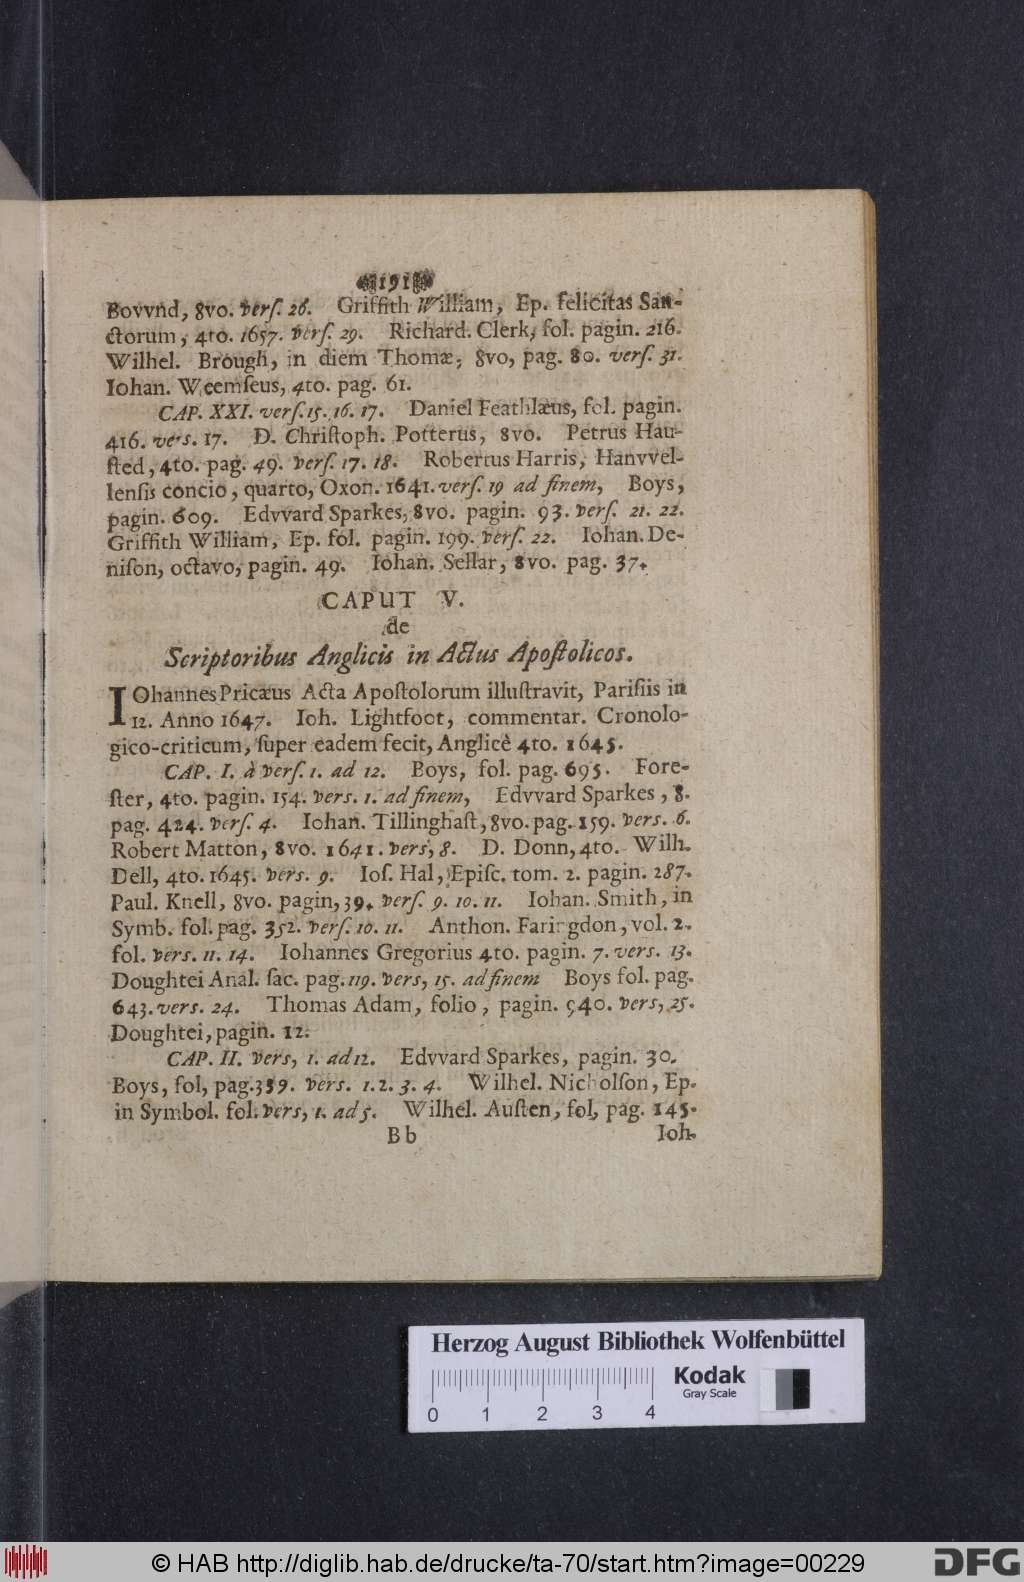 191
Bovvnd, 8vo. verſ. 26. Griffith William, Ep. felicitas San-
ctorum, 4to. 1657. verſ. 29. Richard. Clerk, fol. pagin. 216.
Wilhel. Brough, in diem Thomæ, 8vo, pag. 80. verſ. 31.
Iohan. Weemſeus, 4to. pag. 61.
CAP. XXI. verſ. 15. 16. 17. Daniel Feathlæus, fol. pagin.
416. vers. 17. D. Chriſtoph. Potterus, 8vo. Petrus Hau-
ſted, 4to. pag. 49. verſ. 17. 18. Robertus Harris, Hanvvel-
lenſis concio, quarto, Oxon. 1641. verſ. 19 ad finem, Boys,
pagin. 609. Edvvard Sparkes, 8vo. pagin. 93. verſ. 21. 22.
Griffith William, Ep. fol. pagin. 199. verſ. 22. Iohan. De-
niſon, octavo, pagin. 49. Iohan. Sellar, 8vo. pag. 37.
CAPUT V.
de
Scriptoribus Anglicis in Actus Apoſtolicos.
IOhannes Pricæus Acta Apoſtolorum illuſtravit, Pariſiis in
12. Anno 1647. Ioh. Lightfoot, commentar. Cronolo-
gico-criticum, ſuper eadem fecit, Anglicè 4to. 1645.
CAP. I. à verſ. 1. ad 12. Boys, fol. pag. 695. Fore-
ſter, 4to. pagin. 154. vers. 1. ad finem, Edvvard Sparkes, 8.
pag. 424. verſ. 4. Iohan. Tillinghaſt, 8vo. pag. 159. vers. 6.
Robert Matton, 8vo. 1641. vers, 8. D. Donn, 4to. Wilh.
Dell, 4to. 1645. vers. 9. Ioſ. Hal, Epiſc. tom. 2. pagin. 287.
Paul. Knell, 8vo. pagin, 39. verſ. 9. 10. 11. Iohan. Smith, in
Symb. fol. pag. 352. verſ. 10. 11. Anthon. Faringdon, vol. 2.
fol. vers. 11. 14. Iohannes Gregorius 4to. pagin. 7. vers. 13.
Doughtei Anal. ſac. pag. 119. vers, 15. ad finem Boys fol. pag.
643. vers. 24. Thomas Adam, folio, pagin. 940. vers, 25.
Doughtei, pagin. 12.
CAP. II. vers, 1. ad 12. Edvvard Sparkes, pagin. 30.
Boys, fol, pag. 359. vers. 1. 2. 3. 4. Wilhel. Nicholſon, Ep.
in Symbol. fol. vers, 1. ad 5. Wilhel. Auſten, fol, pag. 145.
Bb Ioh.
Herzog August Bibliothek Wolfenbüttel
Kodak
Gray Scale
0 1 2 3 4
© HAB http://diglib.hab.de/drucke/ta-70/start.htm?image=00229
DFG